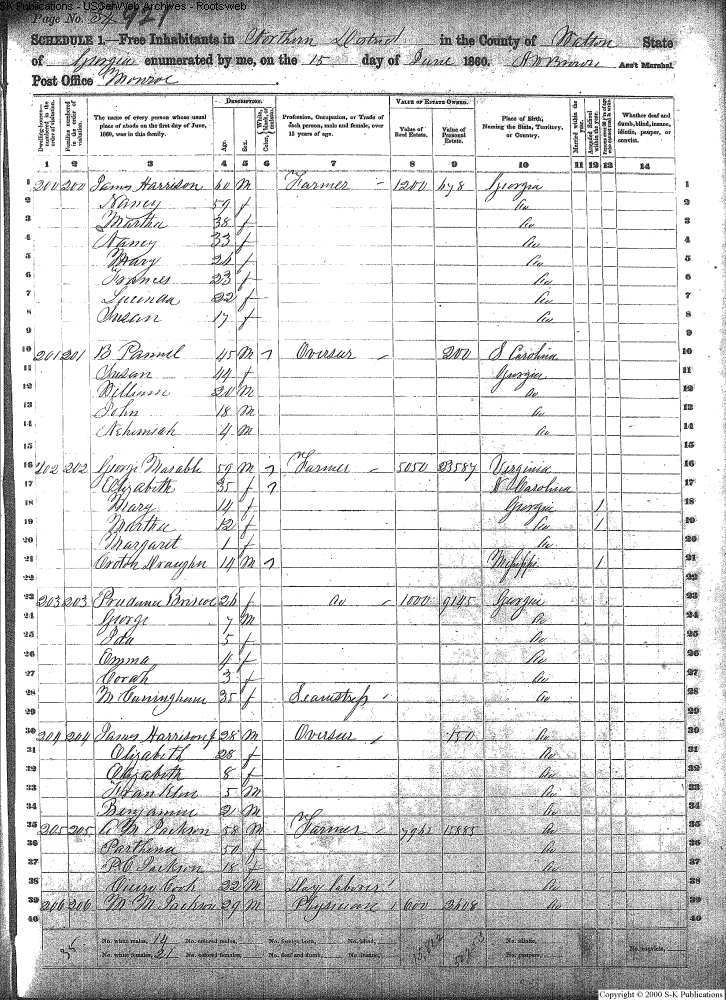 S-K Publications - USGenWeb Archives - Rootsweb
Page No. 34 921
SCHEDULE 1.—Free Inhabitants in Northern District in the County of Walton State
of Georgia enumerated by me, on the 15 day of June 1860. Ass't Marshal
Post Office Monroe
Dwelling-houses—numbered in the order of visitation. Families numbered in the order of visitation. The name of every person whose usual place of abode on the first day of June, 1860, was in this family. DESCRIPTION. Age. Sex. Profession, Occupation, or Trade of each person, male and female, over 15 years of age. VALUE OF ESTATE OWNED. Value of Real Estate. Value of Personal Estate. Place of Birth, Naming the State, Territory, or Country. Married within the year. Attended School within the year. Whether deaf and dumb, blind, insane, idiotic, pauper, or convict.
1 2 3 4 5 6 7 8 9 10 11 12 13 14
1 200 200 James Harrison 60 M Farmer 1200 Georgia 1
2 Nancy 59 f Do 2
3 Martha 38 f Do 3
4 Nancy 33 f Do 4
5 Mary 26 f Do 5
6 Frances 23 f Do 6
7 Lucinda 22 f Do 7
8 Susan 17 f Do 8
9 9
10 201 201 B Pannel 45 M Overseer 200 S Carolina 10
11 Susan 44 f Georgia 11
12 William 20 M Do 12
13 John 18 M Do 13
14 Nehemiah 4 M Do 14
15 15
16 202 202 George 59 M Farmer 5050 23587 Virginia 16
17 Elizabeth 35 f Carolina 17
18 Mary 14 f Georgia 1 18
19 Martha 12 f Do 1 19
20 Margaret 1 f Do 20
21 Draughn 14 M Missippi 1 21
22 22
23 203 203 Prudence Briscoe 26 f Do 1000 9145 Georgia 23
24 George 7 M Do 24
25 Ida 5 f Do 25
26 Emma 4 f Do 26
27 Corah 3 f Do 27
28 M Cunningham 35 f Seamstress Do 28
29 29
30 204 204 James Harrison Jr 28 M Overseer 150 Do 30
31 Elizabeth 28 f Do 31
32 Elizabeth 8 f Do 32
33 Franklin 5 M Do 33
34 Benjamin 2 M Do 34
35 205 205 M Jackson 58 M Farmer 15885 Do 35
36 Parthena 50 f Do 36
37 Jackson 18 f Do 37
38 Cook 22 M Day laborer Do 38
39 206 206 M M Jackson 29 M Physician 600 Do 39
40 40
No. white males, 14 No. colored males, No. foreign born, No. blind, No. idiotic,
No. white females, 21 No. colored females, No. deaf and dumb, No. insane, No. paupers, No. convicts,
Copyright © 2000 S-K Publications